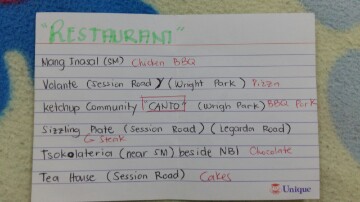 "RESTAURANT"
Mang Inasal (SM) Chicken BBQ
Volante (Session Road) (Wright Park) Pizza
ketchup Community "CANTO" (Wrigh Park) BBQ Pork
Sizzling Plate (Session Road) (Legarda Road)
↳ Steak
Tsokolateria (near SM) beside NBI Chocolate
Tea House (Session Road) Cakes
Unique